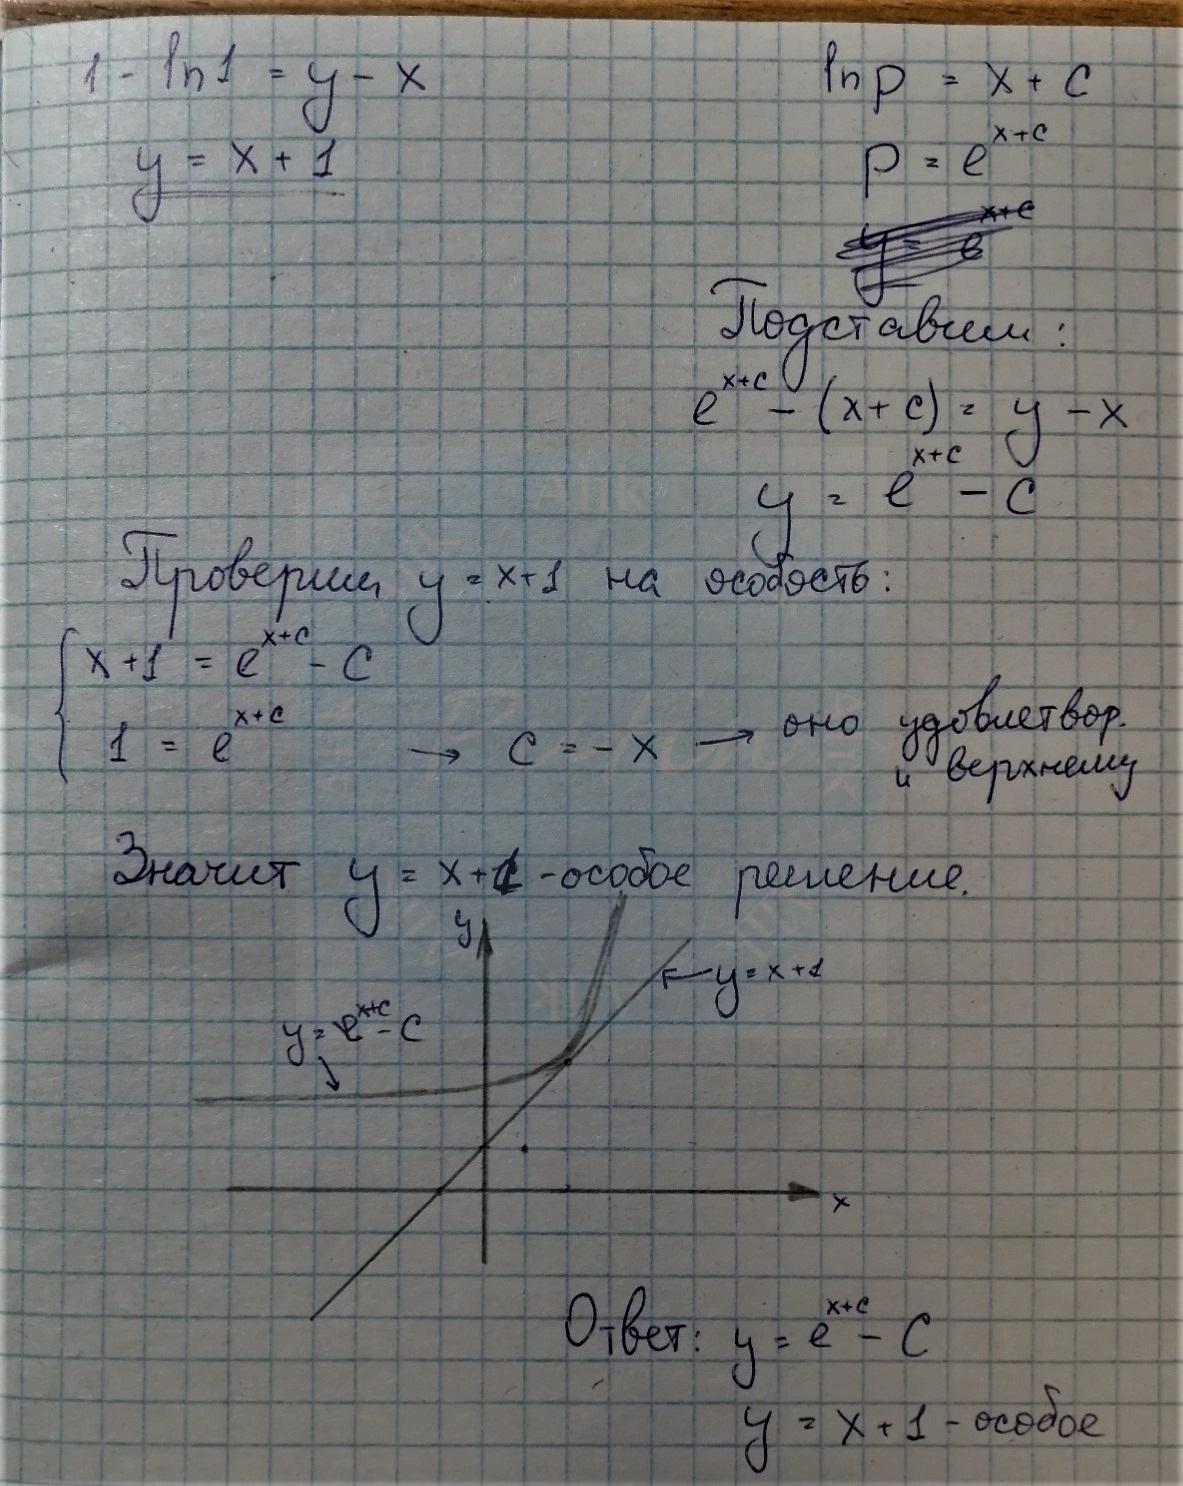 1 - ln1 = y - x
y = x + 1
ln p = x + c
p = e^{x+c}
y = e^{x+c}
Подставим:
e^{x+c} - (x+c) = y - x
y = e^{x+c} - C
Проверим y = x+1 на особость:
x+1 = e^{x+c} - C
1 = e^{x+c} → C = -x → оно удовлетвор.
и верхнему
Значит y = x+1 - особое решение.
y
y = x+1
y = e^{x+c} - C
x
Ответ: y = e^{x+c} - C
y = x+1 - особое